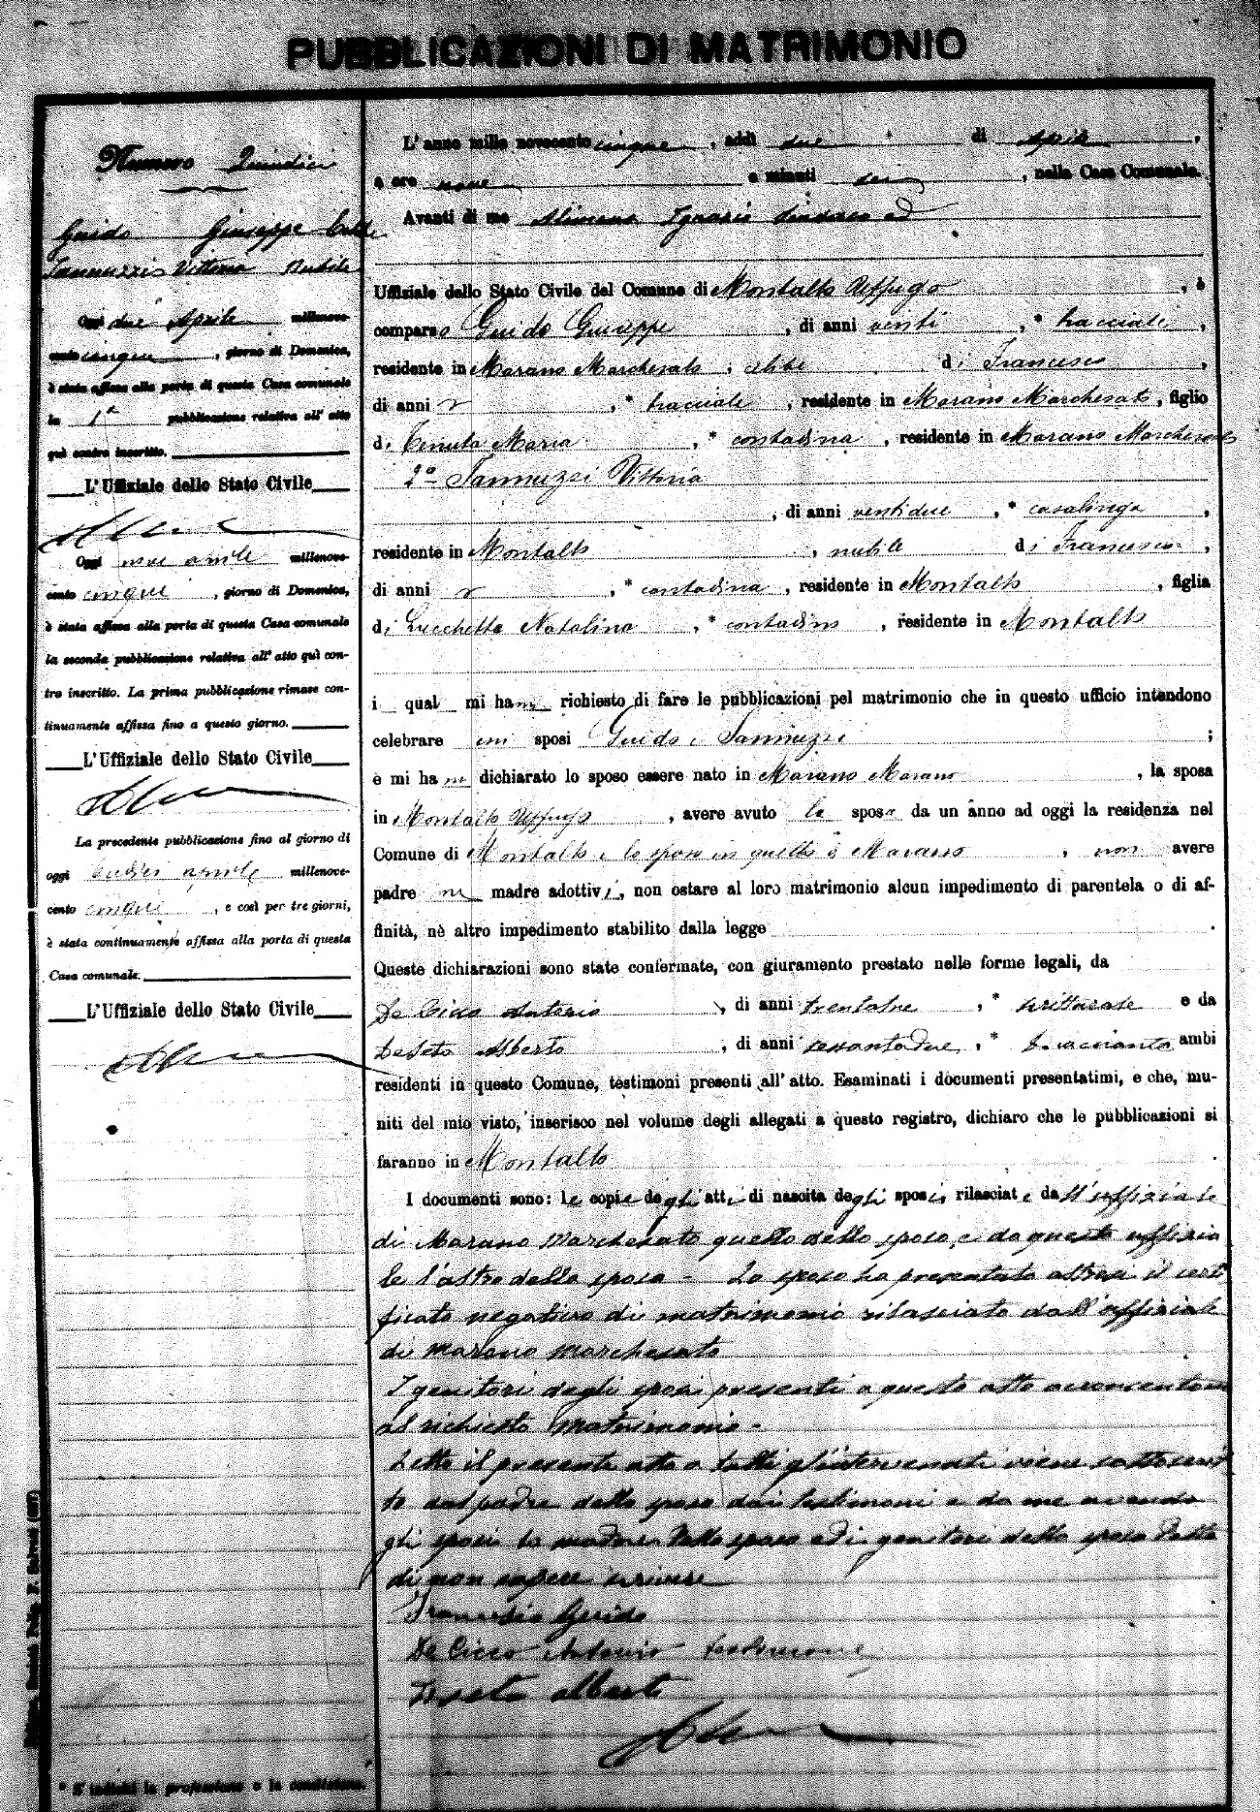 PUBBLICAZIONI DI MATRIMONIO
Numero Quindici
Guido Giuseppe
Iannuzzi Vittoria Nubile
Oggi due Aprile millenove-
cento cinque, giorno di Domenica,
è stata affissa alla porta di questa Casa comunale
la 1ª pubblicazione relativa all'atto
quì contro inscritto.
L'Uffiziale dello Stato Civile
Oggi nove aprile millenove-
cento cinque, giorno di Domenica,
è stata affissa alla porta di questa Casa comunale
la seconda pubblicazione relativa all'atto quì con-
tro inscritto. La prima pubblicazione rimase con-
tinuamente affissa fino a questo giorno.
L'Uffiziale dello Stato Civile
La precedente pubblicazione fino al giorno di
oggi aprile millenove-
cento cinque, e così per tre giorni,
è stata continuamente affissa alla porta di questa
Casa comunale.
L'Uffiziale dello Stato Civile
* S'indichi la professione o la condizione.
L'anno mille novecento cinque, addì due di Aprile,
a ore nove e minuti sei, nella Casa Comunale.
Avanti di me Alimena Ignazio Sindaco ed
Uffiziale dello Stato Civile del Comune di Montalto Uffugo, è
comparso Guido Giuseppe, di anni venti, * bracciale,
residente in Marano Marchesato, celibe di Francesco,
di anni * bracciale, residente in Marano Marchesato, figlio
di Tenuta Maria, * contadina, residente in Marano Marchesato
2º Iannuzzi Vittoria
, di anni ventidue, * casalinga,
residente in Montalto, nubile di Francesco,
di anni * contadino, residente in Montalto, figlia
di Lucchetta Natalina, * contadina, residente in Montalto
i qual mi hann richiesto di fare le pubblicazioni pel matrimonio che in questo ufficio intendono
celebrare essi sposi Guido e Iannuzzi ;
e mi hann dichiarato lo sposo essere nato in Marano Marano, la sposa
in Montalto Uffugo, avere avuto la sposa da un anno ad oggi la residenza nel
Comune di Montalto e lo sposo in quello di Marano, non avere
padre ne madre adottivi, non ostare al loro matrimonio alcun impedimento di parentela o di af-
finità, nè altro impedimento stabilito dalla legge.
Queste dichiarazioni sono state confermate, con giuramento prestato nelle forme legali, da
De Cicco Antonio, di anni trentatre, * e da
Deseta Alberto, di anni sessantadue, * ambi
residenti in questo Comune, testimoni presenti all'atto. Esaminati i documenti presentatimi, e che, mu-
niti del mio visto, inserisco nel volume degli allegati a questo registro, dichiaro che le pubblicazioni si
faranno in Montalto
I documenti sono: le copie degli atti di nascita degli sposi rilasciate dall'uffiziale
di Marano Marchesato quello dello sposo, e da questo uffizia
le l'altro della sposa - Lo sposo ha presentato altresi il certi
ficato negativo di matrimonio rilasciato dall'uffiziale
di Marano Marchesato
I genitori degli sposi presenti a questo atto acconsentono
al richiesto matrimonio -
Letto il presente atto a tutti gl'intervenuti viene sottoscrit
to dal padre dello sposo dai testimoni e da me avendo
gli sposi la madre dello sposo ed i genitori della sposa detto
di non sapere scrivere
Francesco Guido
De Cicco Antonio testimone
Deseta Alberto